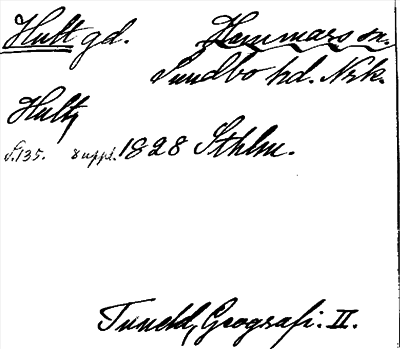 Hult gd. Hammars sn.
Sundbo hd. Nrk.
Hult,
S. 135. uppl. 1828 Sthlm.
Tuneld, Geografi. II.